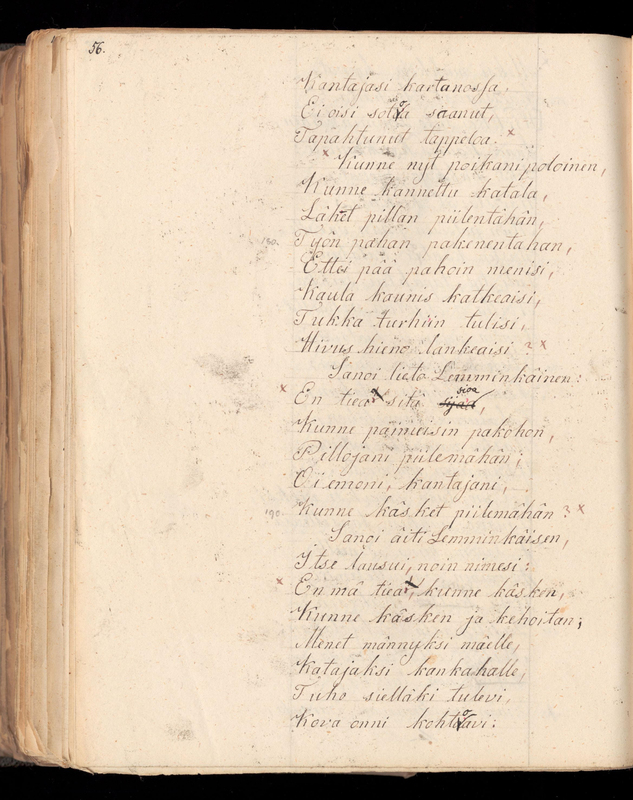 56.
Kantajasi kartanossa,
Ei oisi sotoa saanut,
Tapahtunut tappeloa. x
x Kunne nyt poikani poloinen,
Kunne kannettu katala,
Lähet pillan piilentähän,
180. Työn pahan pakenentahan,
Ettei pää pahoin menisi,
Kaula kaunis katkeaisi,
Tukka turhiin tulisi,
Hivus hieno lankeaisi? x
Sanoi lieto Lemminkäinen:
sioa
x En tieä sitä sijaa,
Kunne painuisin pakohon,
Pillojani piilemähän;
Oi emoni, kantajani,
190. Kunne käsket piilemähän? x
Sanoi äiti Lemminkäisen,
Itse lausui, noin nimesi:
x En mä tieä, kunne käsken,
Kunne käsken ja kehoitan;
Menet männyksi mäelle,
Katajaksi kankahalle,
Tuho sielläki tulevi,
Kova onni kohtoavi: